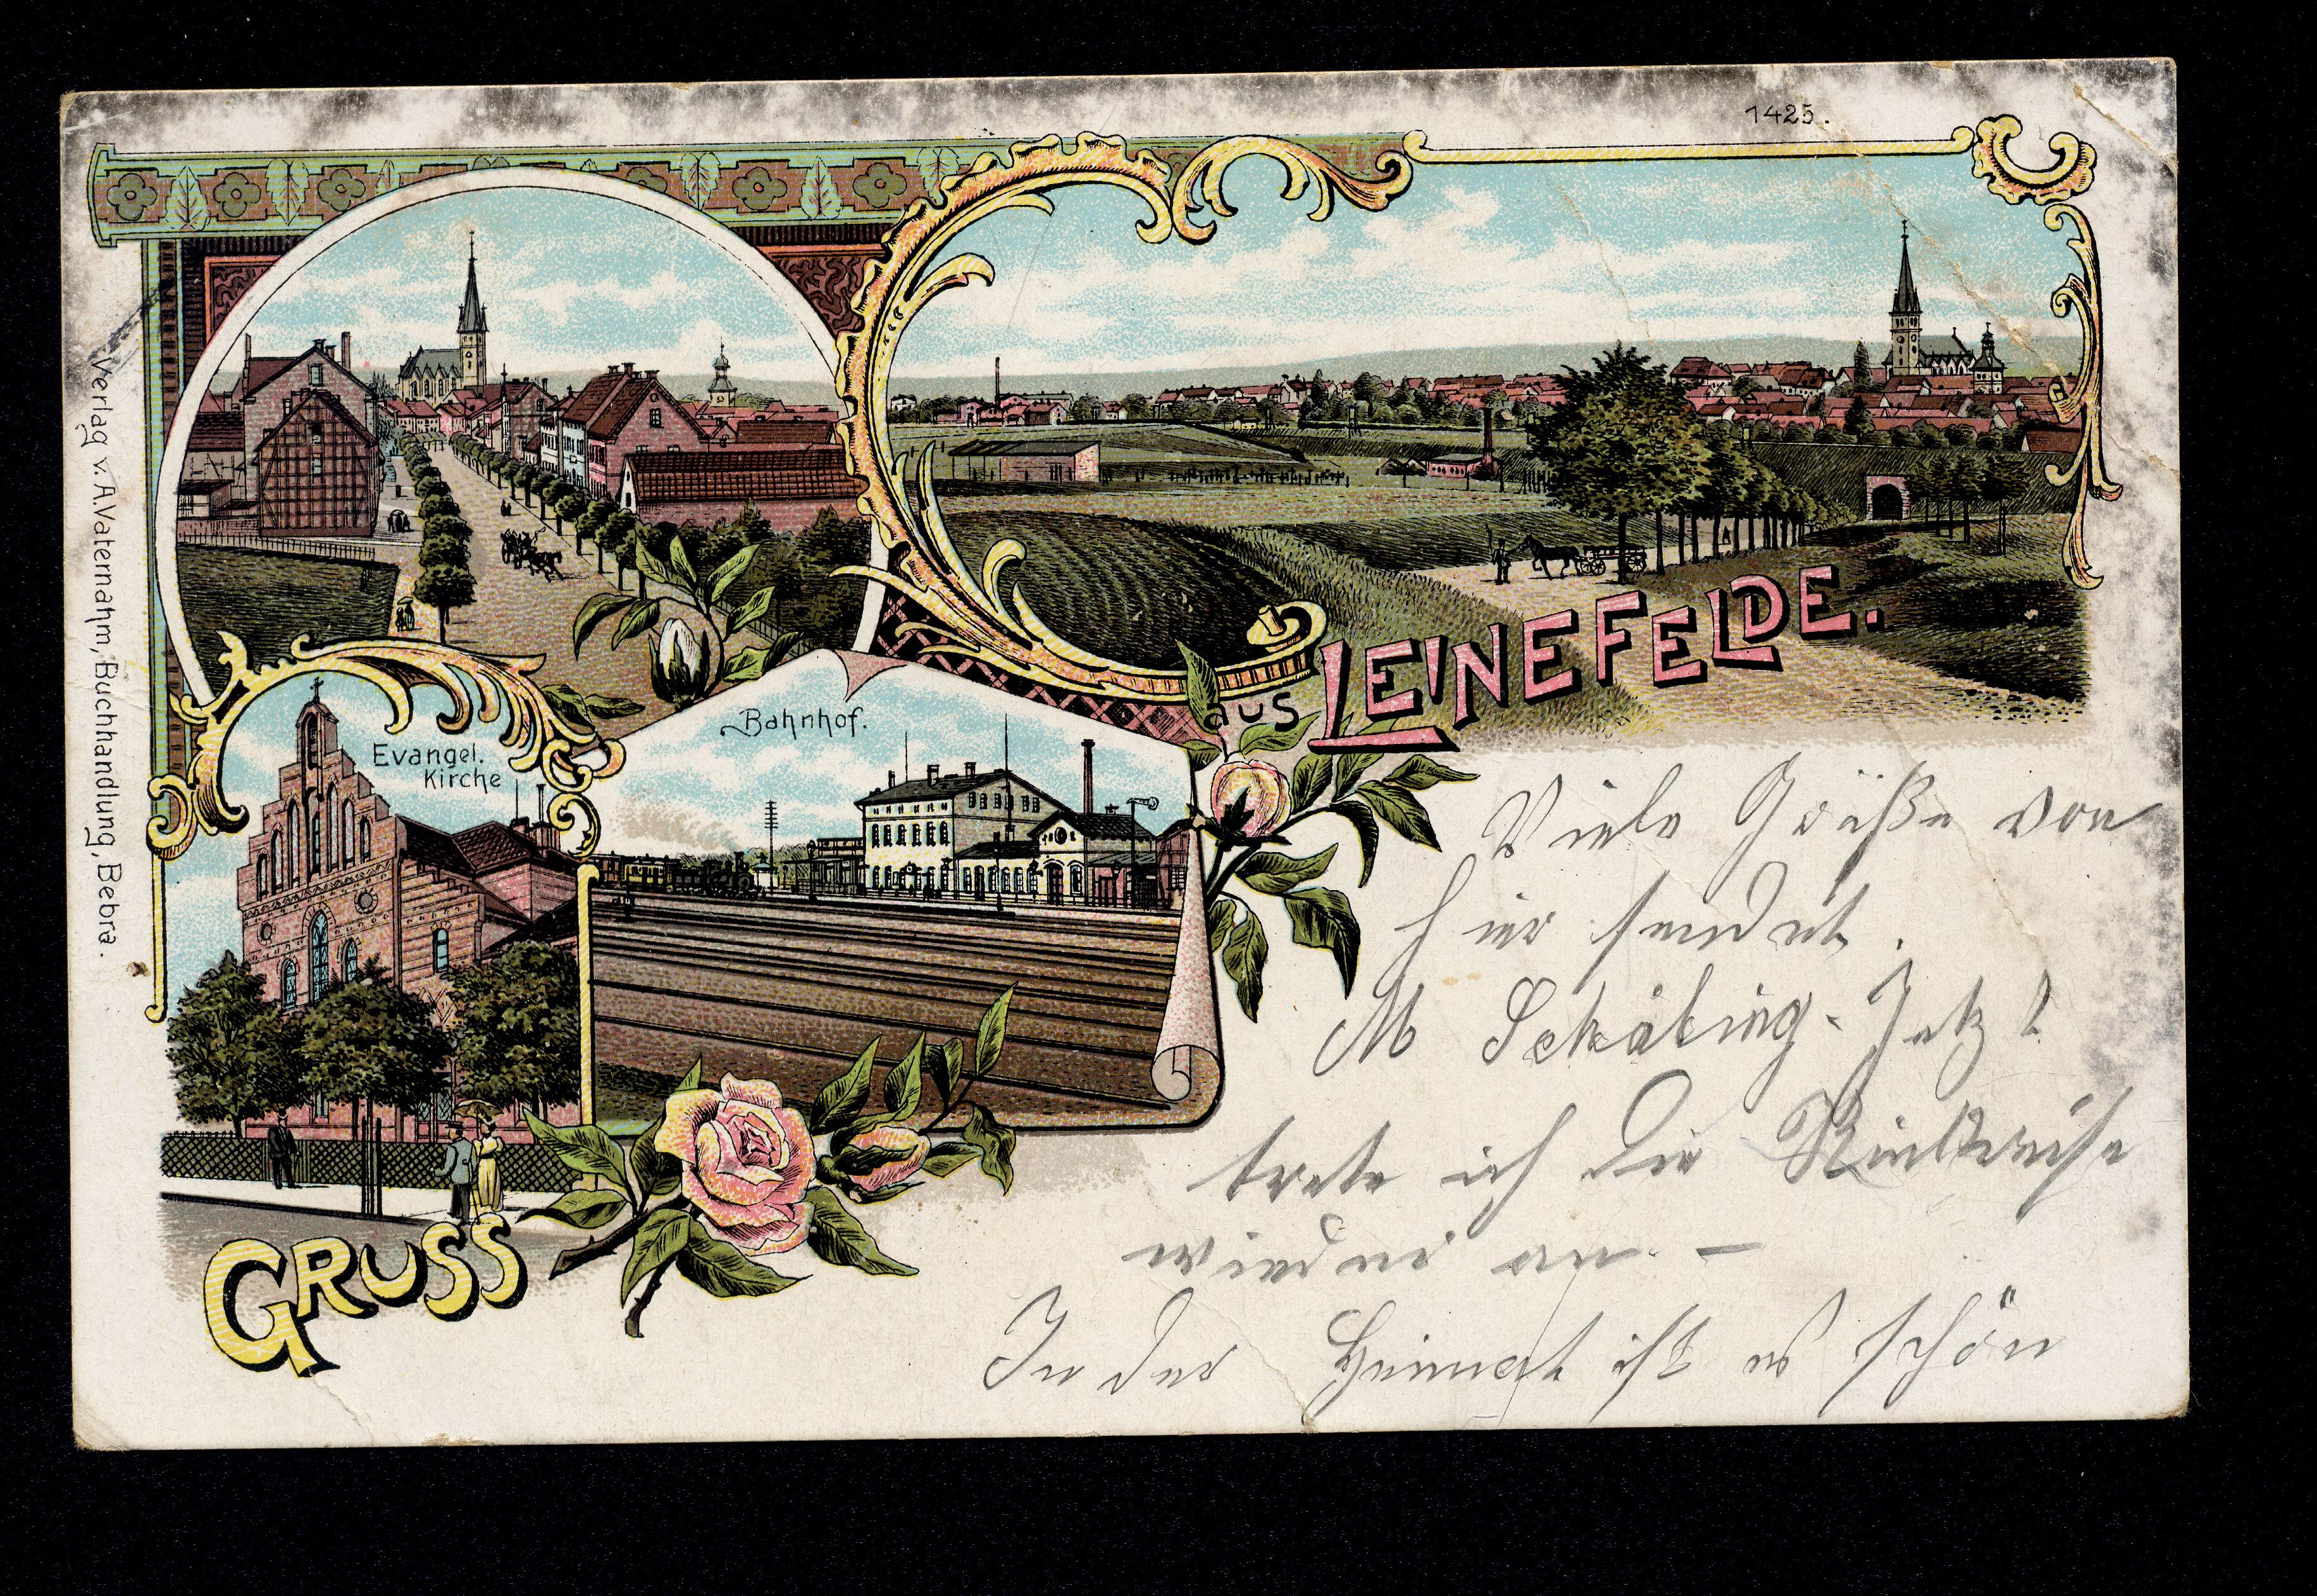 1425.
Verlag v. A. Vaternahm, Buchhandlung, Bebra.
Evangel.
Kirche
Bahnhof.
GRUSS
aus LEINEFELDE.
Viele Grüße von
hier sendet.
M Jetzt
trete ich die Rückreise
wieder an. –
In der Heimat ist es schön